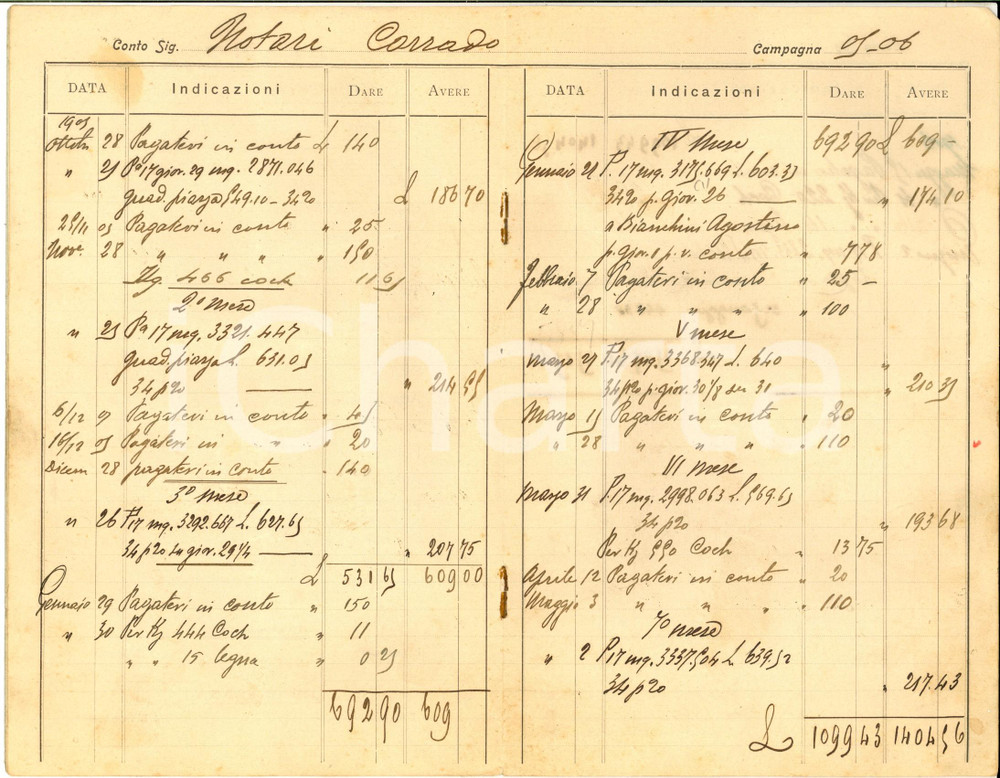 Conto Sig. Notari Corrado
Campagna 05-06
DATA Indicazioni DARE AVERE
1905
Ottobr 28 Pagatevi in conto £ 140
" 25 Pa 17 gior. 29 mg. 2871.046
quad. piazza 549.10 - 34% £ 186 70
25/11 05 Pagatevi in conto " 25
Nove. 28 " " " " 150
Kg. 466 coch 11 65
2º mese
" 25 Pa 17 mg. 3321.447
quad. piazza £. 631.05
34 p%
" 214 55
6/12 05 Pagatevi in conto " 45
16/12 05 Pagatevi in " " 20
Dicem 28 pagatevi in conto " 140
3º mese
" 26 P. 17 mg. 3292.667 L. 627.65
34 p% su gior. 29¼ " 207 75
£ 531 65 609 00
Gennaio 29 Pagatevi in conto " 150
" 30 Per Kg 444 Coch " 11
" " 15 legna " 0 25
692 90 609
DATA Indicazioni DARE AVERE
IV Mese 692 90 £ 609 -
Gennaio 28 P. 17 mg. 3175.669 L. 603.35
34% p. gior. 26 " 174 10
a Bianchini Agostino
p. gior. 1 p. v. conto " 7 78
febbraio 7 Pagatevi in conto " 25 -
" 28 " " " " 100
V mese
Marzo 27 P. 17 mg. 3368.347 L. 640
34 p% p. gior. 30⅞ su 31 " 210 35
Marzo 15 Pagatevi in conto " 20
" 28 " " " " 110
VI mese
Marzo 31 P. 17 mg. 2998.063 L. 569.65
34 p% " 193 68
Per Kg 550 Coch " 13 75
Aprile 12 Pagatevi in conto " 20
Maggio 3 " " " " 110
7º mese
" 2 P. 17 mg. 3337.504 L. 639.52
34 p% " 217.43
£ 1099 43 1404 56
Charta